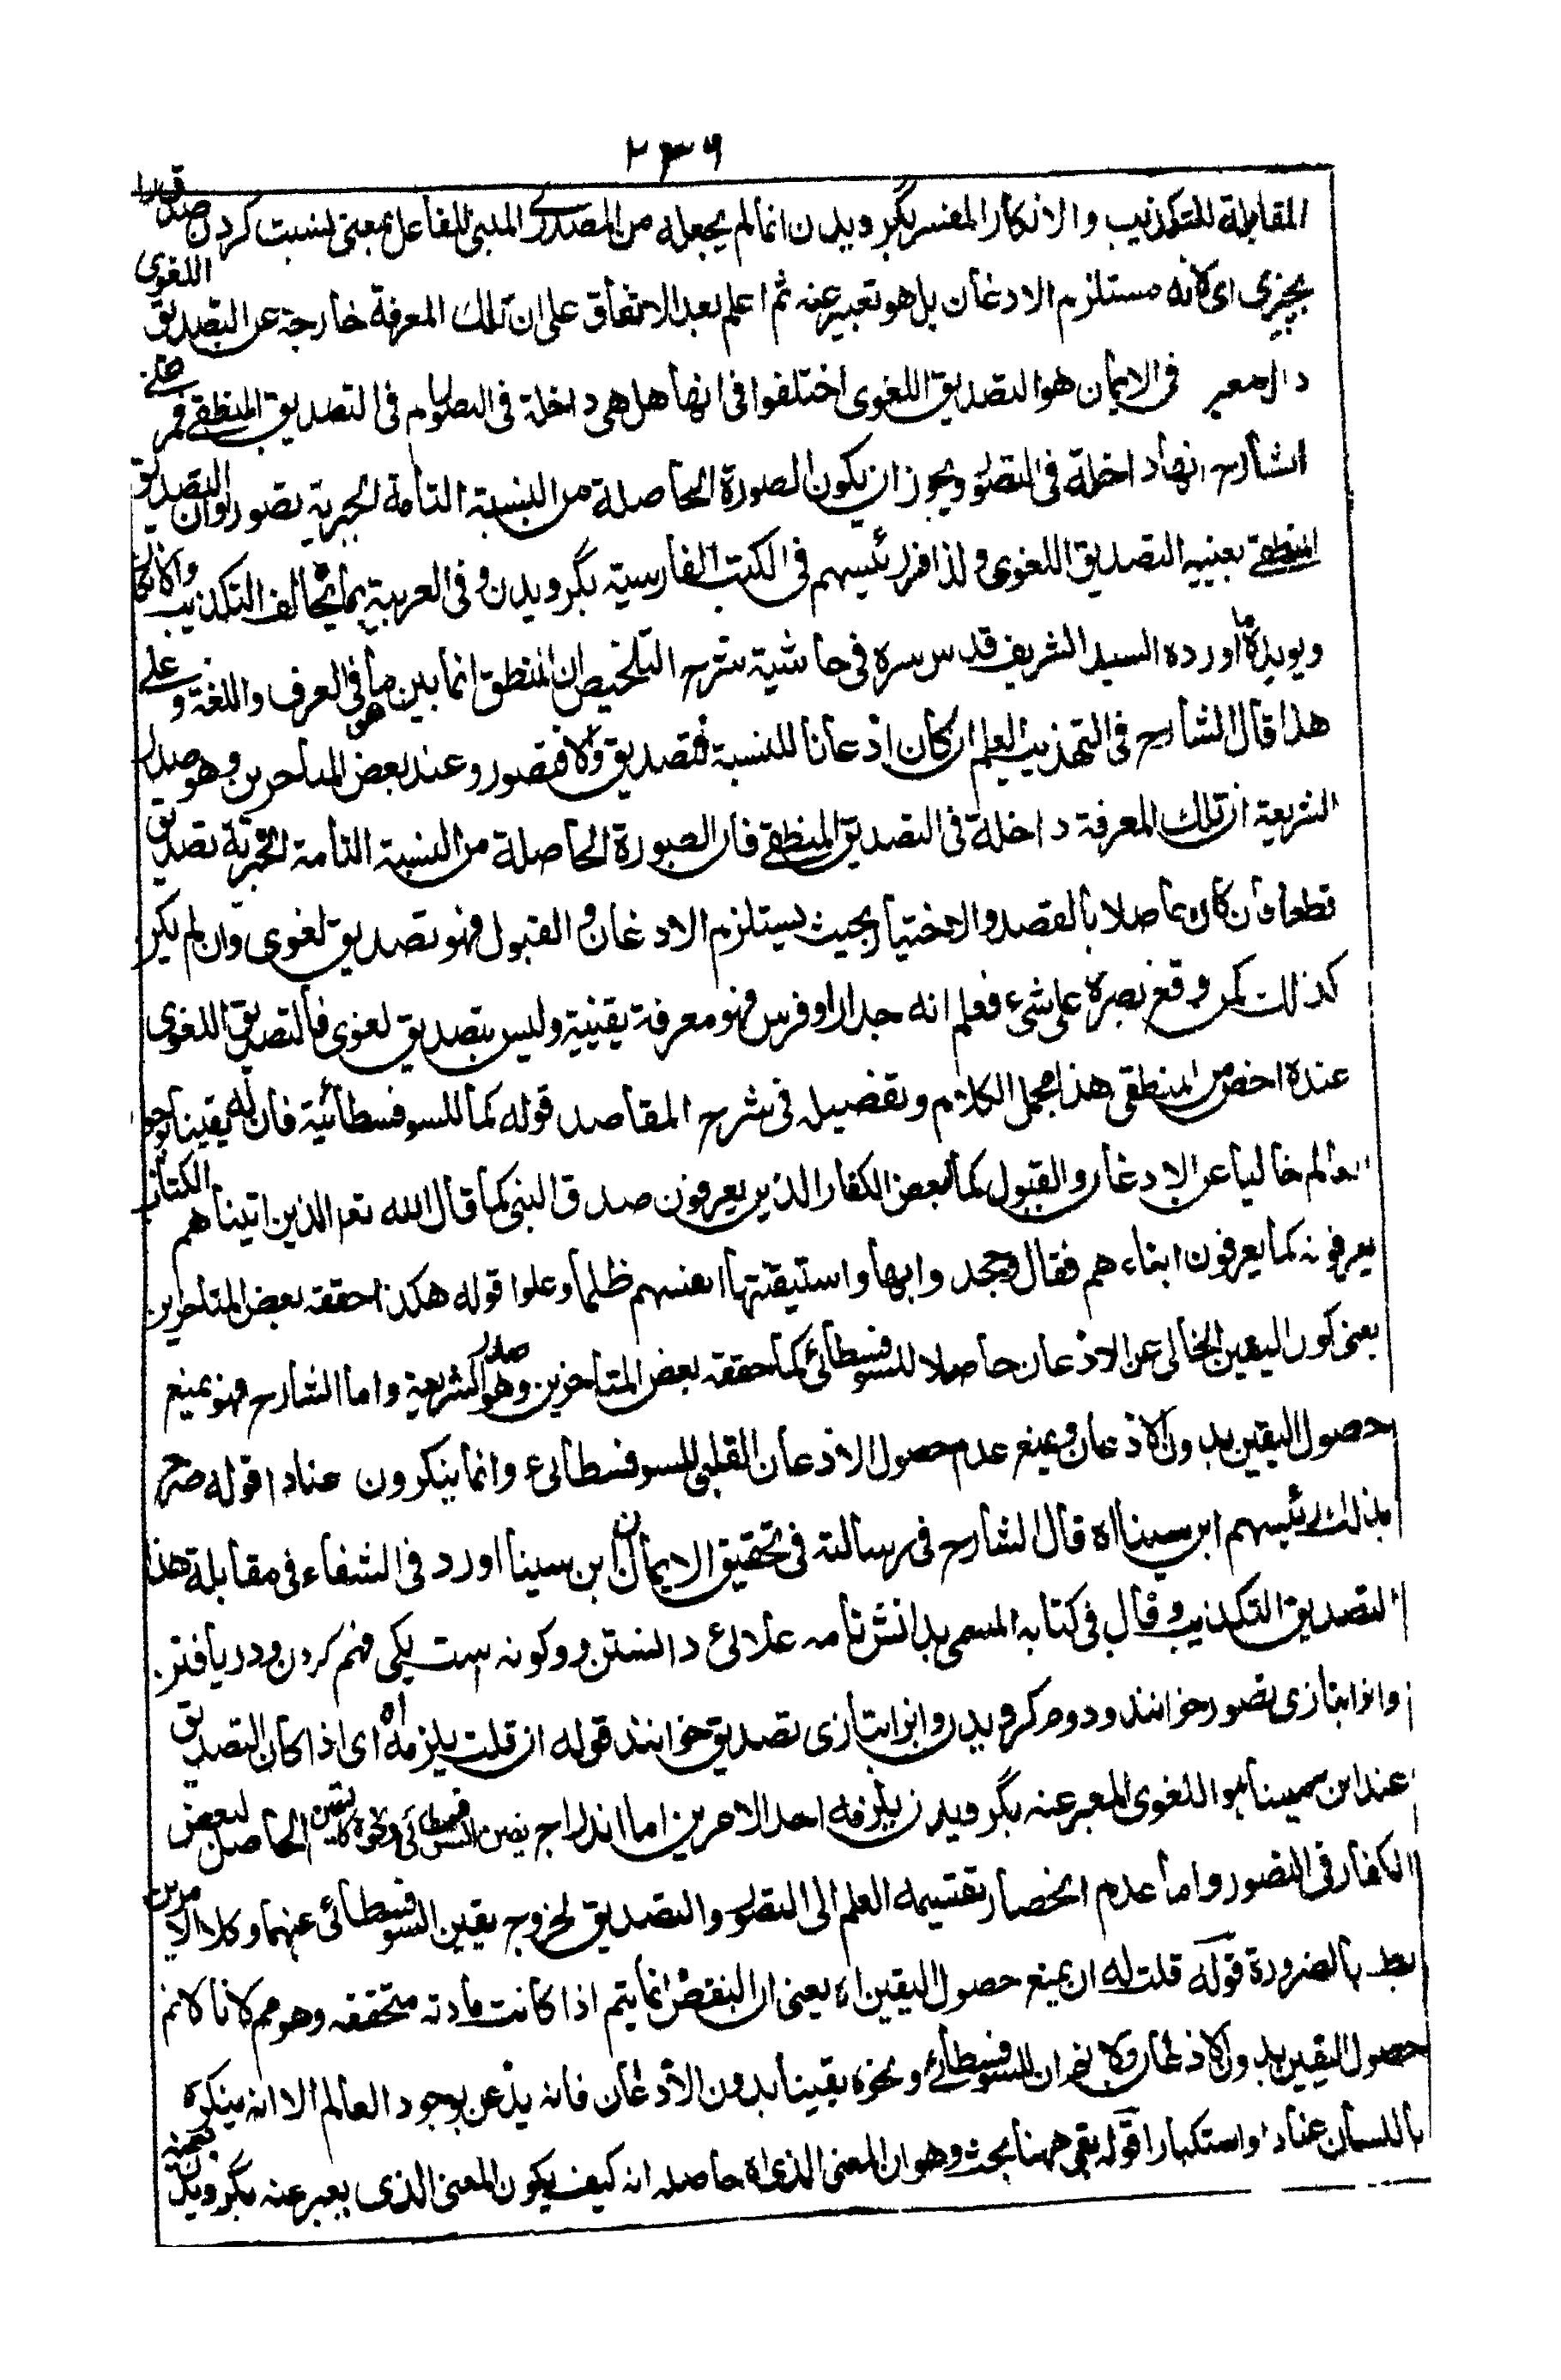 ٢٣٦
المقابلة للتكذيب والانكار المفسر بگرويدن انما لم يجعله من المصدر المبنى للفاعل بمعنى نسبت كردن صدق را
بچيزى اى لانه مستلزم الاذعان بل هو تعبير عنه ثم اعلم بعد الاتفاق على ان تلك المعرفة خارجة عن التصديق اللغوى
فى الايمان هو التصديق اللغوى اختلفوا فى انها هل هى داخلة فى التصور ام فى التصديق المنطقى
الشارح انها داخلة فى التصور ويجوز ان يكون الصورة الحاصلة من النسبة التامة الخبرية تصورا وان التصديق
المنطقى بعينه التصديق اللغوى ولذا فسر رئيسهم فى الكتب الفارسية بگرويدن وفى العربية بما يخالف التكذيب والانكار
ويويده ما اورده السيد الشريف قدس سره فى حاشية شرح التلخيص ان المنطق انما بين ما هو فى العرف واللغة وعلى
هذا قال الشارح فى التهذيب العلم ان كان اذعانا للنسبة فتصديق والا فتصور وعند بعض المتاخرين وهو صدر
الشريعة ان تلك المعرفة داخلة فى التصديق المنطقى فان الصورة الحاصلة من النسبة التامة الخبرية تصديق
قطعا فان كان حاصلا بالقصد والاختيار بحيث يستلزم الاذعان والقبول فهو تصديق لغوى وان لم يكن
كذلك كمن وقع بصره على شىء فعلم انه جدار او فرس فهو معرفة يقينية وليس بتصديق لغوى فالتصديق اللغوى
عنده اخص من المنطقى هذا مجمل الكلام وتفصيله فى شرح المقاصد قوله كما للسوفسطائية فان له يقينا بوجود
العالم خاليا عن الاذعان والقبول كما لبعض الكفار الذين يعرفون صدق النبى كما قال الله تع الذين اتيناهم الكتاب
يعرفونه كما يعرفون ابناءهم فقال وجحدوا بها واستيقنتها انفسهم ظلما وعلوا قوله هكذا حققه بعض المتاخرين
يعنى كون اليقين الخالى عن الاذعان حاصلا للسوفسطائى كما حققه بعض المتاخرين وهو صدر الشريعة واما الشارح فهو يمنع
حصول اليقين بدون الاذعان ويمنع عدم حصول الاذعان القلبى للسوفسطائى وانما ينكرون عنادا قوله صرح
بذلك رئيسهم ابن سينا اه قال الشارح فى رسالته فى تحقيق الايمان ان ابن سينا اورد فى الشفاء فى مقابلة هذا
التصديق التكذيب وقال فى كتابه المسمى بدانش نامه علائى دانستن دو كونه است يكى فهم كردن ودريافتن
وانرا بتازى تصور خوانند ودوم كرويدن وانرا بتازى تصديق خوانند قوله ان قلت يلزمه اه اى اذا كان التصديق
عند ابن سينا هو اللغوى المعبر عنه بگرويدن يلزمه احد الامرين اما اندراج يقين السوفسطائى ونحوه كاليقين الحاصل لبعض
الكفار فى التصور واما عدم انحصار تقسيمه العلم الى التصور والتصديق لخروج يقين السوفسطائى عنهما وكلا الامرين
بط بالضرورة قوله قلت له ان يمنع حصول اليقين اه يعنى ان النقض انما يتم اذا كانت مادته متحققه وهو مم لانا لا نم
حصول اليقين بدون الاذعان ولا نم ان للسوفسطائى ونحوه يقينا بدون الاذعان فانه يذعن بوجود العالم الا انه ينكره
باللسان عنادا واستكبارا قوله بقى ههنا بحث وهو ان المعنى الذى اه حاصله انه كيف يكون المعنى الذى يعبر عنه بگرويدن بعينه